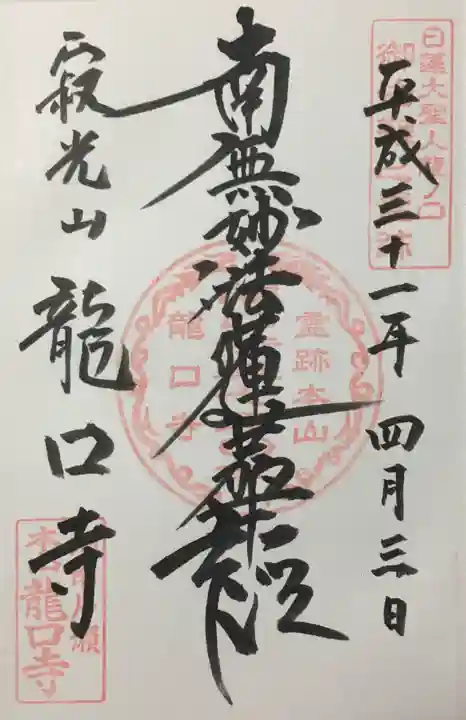 平成三十一年 四月三日
南無妙法蓮華経
寂光山 龍口寺
日蓮大聖人龍ノ口
御
霊跡本山
龍口寺
龍口寺